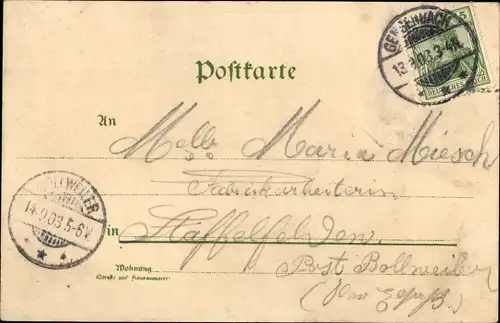 5
GENGENBACH
13.9.03.3-4N.
DEUTSCHES REICH
Postkarte
An
Melle Maria Miesch
Fabrikarbeiterin
in Staffelfelden,
Post Bollweiler
(Ober Elsaß.)
Wohnung
(Straße und Hausnummer)
BOLLWEILER
14.9.03.5-6N.